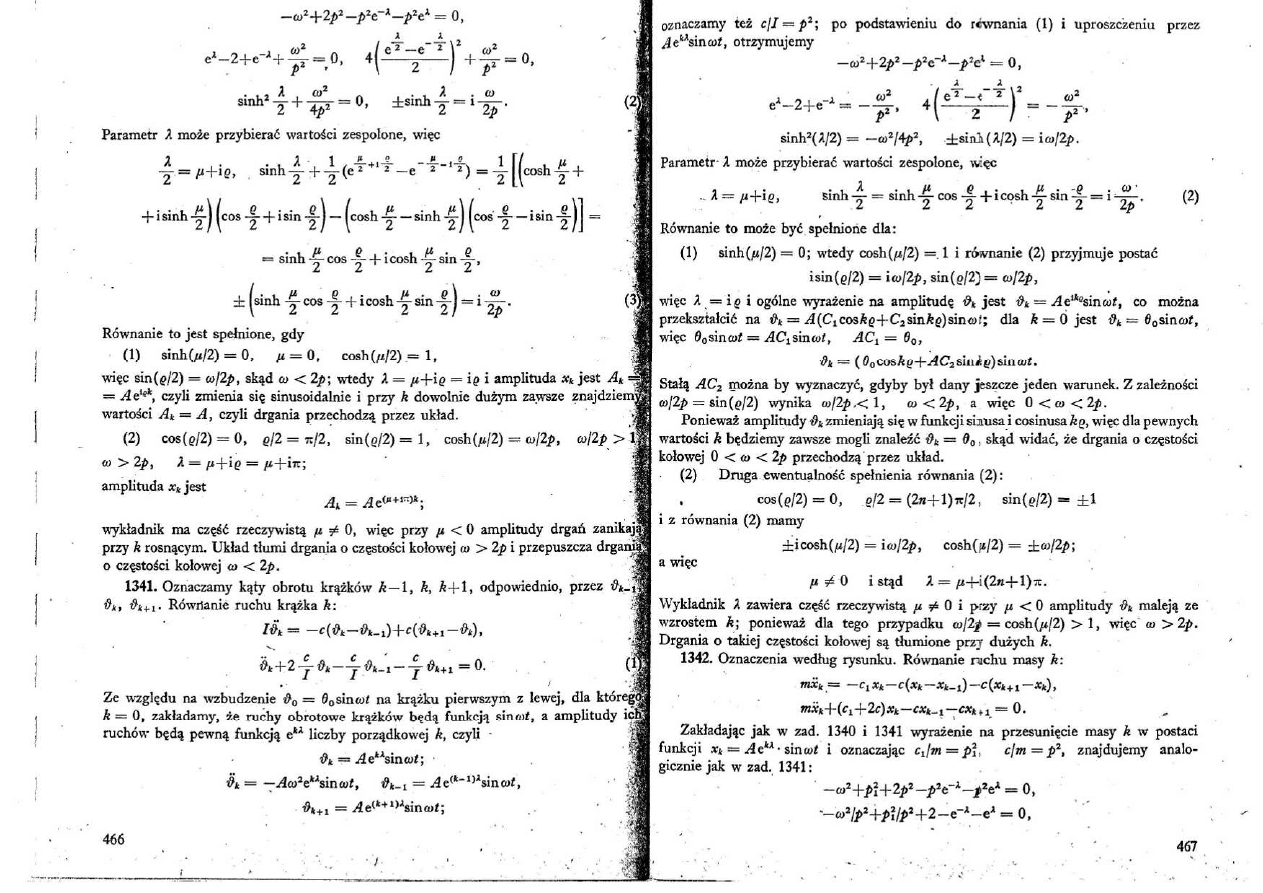 −ω²+2p²−p²e^−λ−p²e^λ = 0,
e^λ−2+e^−λ+ω²/p² = 0, 4((e^(λ/2)−e^(−λ/2))/2)² + ω²/p² = 0,
sinh² λ/2 + ω²/4p² = 0, ±sinh λ/2 = i ω/2p. (2)
Parametr λ może przybierać wartości zespolone, więc
λ/2 = μ+iϱ, sinh λ/2 + 1/2 (e^(μ/2+i ϱ/2) − e^(−μ/2−i ϱ/2)) = 1/2 [(cosh μ/2 +
+i sinh μ/2)(cos ϱ/2 + i sin ϱ/2) − (cosh μ/2 − sinh μ/2)(cos ϱ/2 − i sin ϱ/2)] =
= sinh μ/2 cos ϱ/2 + i cosh μ/2 sin ϱ/2,
±(sinh μ/2 cos ϱ/2 + i cosh μ/2 sin ϱ/2) = i ω/2p. (3)
Równanie to jest spełnione, gdy
(1) sinh(μ/2) = 0, μ = 0, cosh(μ/2) = 1,
więc sin(ϱ/2) = ω/2p, skąd ω < 2p; wtedy λ = μ+iϱ = iϱ i amplituda xₖ jest Aₖ =
= Ae^iϱk, czyli zmienia się sinusoidalnie i przy k dowolnie dużym zawsze znajdziemy
wartości Aₖ = A, czyli drgania przechodzą przez układ.
(2) cos(ϱ/2) = 0, ϱ/2 = π/2, sin(ϱ/2) = 1, cosh(μ/2) = ω/2p, ω/2p > 1,
ω > 2p, λ = μ+iϱ = μ+iπ;
amplituda xₖ jest
Aₖ = Ae^(μ+iπ)k;
wykładnik ma część rzeczywistą μ ≠ 0, więc przy μ < 0 amplitudy drgań zanikają
przy k rosnącym. Układ tłumi drgania o częstości kołowej ω > 2p i przepuszcza drgania
o częstości kołowej ω < 2p.
1341. Oznaczamy kąty obrotu krążków k−1, k, k+1, odpowiednio, przez ϑₖ₋₁,
ϑₖ, ϑₖ₊₁. Równanie ruchu krążka k:
Iϑ̈ₖ = −c(ϑₖ−ϑₖ₋₁)+c(ϑₖ₊₁−ϑₖ),
ϑ̈ₖ+2 c/I ϑₖ− c/I ϑₖ₋₁− c/I ϑₖ₊₁ = 0. (1)
Ze względu na wzbudzenie ϑ₀ = θ₀sinωt na krążku pierwszym z lewej, dla którego
k = 0, zakładamy, że ruchy obrotowe krążków będą funkcją sinωt, a amplitudy ich
ruchów będą pewną funkcją e^kλ liczby porządkowej k, czyli
ϑₖ = Ae^kλ sinωt;
ϑ̈ₖ = −Aω²e^kλ sinωt, ϑₖ₋₁ = Ae^(k−1)λ sinωt,
ϑₖ₊₁ = Ae^(k+1)λ sinωt;
466
oznaczamy też c/I = p²; po podstawieniu do równania (1) i uproszczeniu przez
Ae^kλ sinωt, otrzymujemy
−ω²+2p²−p²e^−λ−p²e^λ = 0,
e^λ−2+e^−λ = −ω²/p², 4((e^(λ/2)−e^(−λ/2))/2)² = −ω²/p²,
sinh²(λ/2) = −ω²/4p², ±sinh(λ/2) = iω/2p.
Parametr λ może przybierać wartości zespolone, więc
λ = μ+iϱ, sinh λ/2 = sinh μ/2 cos ϱ/2 + i cosh μ/2 sin ϱ/2 = i ω/2p. (2)
Równanie to może być spełnione dla:
(1) sinh(μ/2) = 0; wtedy cosh(μ/2) = 1 i równanie (2) przyjmuje postać
i sin(ϱ/2) = iω/2p, sin(ϱ/2) = ω/2p,
więc λ = iϱ i ogólne wyrażenie na amplitudę ϑₖ jest ϑₖ = Ae^ikϱ sinωt, co można
przekształcić na ϑₖ = A(C₁coskϱ+C₂sinkϱ)sinωt; dla k = 0 jest ϑₖ = θ₀sinωt,
więc θ₀sinωt = AC₁sinωt, AC₁ = θ₀,
ϑₖ = (θ₀coskϱ+AC₂sinkϱ)sinωt.
Stałą AC₂ można by wyznaczyć, gdyby był dany jeszcze jeden warunek. Z zależności
ω/2p = sin(ϱ/2) wynika ω/2p < 1, ω < 2p, a więc 0 < ω < 2p.
Ponieważ amplitudy ϑₖ zmieniają się w funkcji sinusa i cosinusa kϱ, więc dla pewnych
wartości k będziemy zawsze mogli znaleźć ϑₖ = θ₀, skąd widać, że drgania o częstości
kołowej 0 < ω < 2p przechodzą przez układ.
(2) Druga ewentualność spełnienia równania (2):
cos(ϱ/2) = 0, ϱ/2 = (2n+1)π/2, sin(ϱ/2) = ±1
i z równania (2) mamy
±i cosh(μ/2) = iω/2p, cosh(μ/2) = ±ω/2p;
a więc
μ ≠ 0 i stąd λ = μ+i(2n+1)π.
Wykładnik λ zawiera część rzeczywistą μ ≠ 0 i przy μ < 0 amplitudy ϑₖ maleją ze
wzrostem k; ponieważ dla tego przypadku ω/2p = cosh(μ/2) > 1, więc ω > 2p.
Drgania o takiej częstości kołowej są tłumione przy dużych k.
1342. Oznaczenia według rysunku. Równanie ruchu masy k:
mẍₖ = −c₁xₖ−c(xₖ−xₖ₋₁)−c(xₖ₊₁−xₖ),
mẍₖ+(c₁+2c)xₖ−cxₖ₋₁−cxₖ₊₁ = 0.
Zakładając jak w zad. 1340 i 1341 wyrażenie na przesunięcie masy k w postaci
funkcji xₖ = Ae^kλ · sinωt i oznaczając c₁/m = p₁², c/m = p², znajdujemy analo-
gicznie jak w zad. 1341:
−ω²+p₁²+2p²−p²e^−λ−p²e^λ = 0,
−ω²/p²+p₁²/p²+2−e^−λ−e^λ = 0,
467